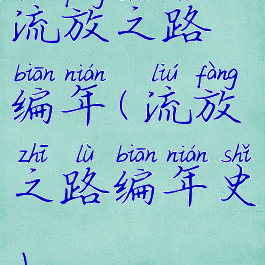 流放之路
biān nián liú fàng
编年(流放
zhī lù biān nián shǐ
之路编年史
)